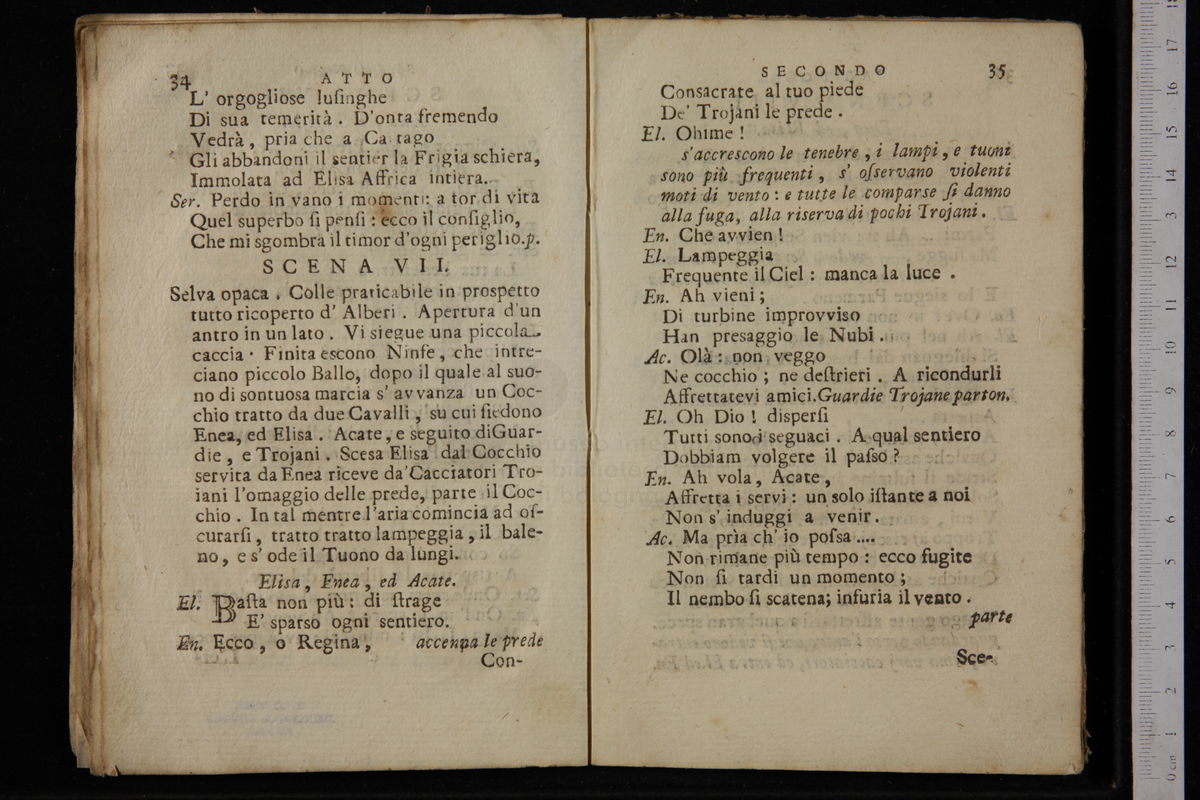 34 ATTO
L' orgogliose luſinghe
Di sua temerità . D'onta fremendo
Vedrà , pria che a Ca tago
Gli abbandoni il sentier la Frigia schiera,
Immolata ad Elisa Affrica intiera.
Ser. Perdo in vano i momenti: a tor di vita
Quel superbo ſi penſi : ecco il conſiglio,
Che mi sgombra il timor d'ogni periglio.p.
SCENA VII.
Selva opaca . Colle praticabile in prospetto
tutto ricoperto d' Alberi . Apertura d'un
antro in un lato . Vi siegue una piccola
caccia . Finita escono Ninfe , che intre-
ciano piccolo Ballo, dopo il quale al suo-
no di sontuosa marcia s' avvanza un Coc-
chio tratto da due Cavalli , su cui ſiedono
Enea, ed Elisa . Acate , e seguito diGuar-
die , e Trojani . Scesa Elisa dal Cocchio
servita da Enea riceve da'Cacciatori Tro-
iani l'omaggio delle prede, parte il Coc-
chio . In tal mentre l'aria comincia ad oſ-
curarſi , tratto tratto lampeggia , il bale-
no , e s' ode il Tuono da lungi.
Elisa , Enea , ed Acate.
El. Baſta non più : di ſtrage
E' sparso ogni sentiero.
En. Ecco , o Regina , accenna le prede
Con-
SECONDO 35
Consacrate al tuo piede
De' Trojani le prede .
El. Ohime !
s'accrescono le tenebre , i lampi , e tuoni
sono più frequenti , s' oſservano violenti
moti di vento : e tutte le comparse ſi danno
alla fuga, alla riserva di pochi Trojani .
En. Che avvien !
El. Lampeggia
Frequente il Ciel : manca la luce .
En. Ah vieni ;
Di turbine improvviso
Han presaggio le Nubi .
Ac. Olà : non veggo
Ne cocchio ; ne deſtrieri . A ricondurli
Affrettatevi amici.Guardie Trojane parton.
El. Oh Dio ! disperſi
Tutti sono i seguaci . A qual sentiero
Dobbiam volgere il paſso ?
En. Ah vola , Acate ,
Affretta i servi : un solo iſtante a noi
Non s' induggi a venir .
Ac. Ma prìa ch' io poſsa ....
Non rimane più tempo : ecco fugite
Non ſi tardi un momento ;
Il nembo ſi scatena; infuria il vento .
parte
Sce-